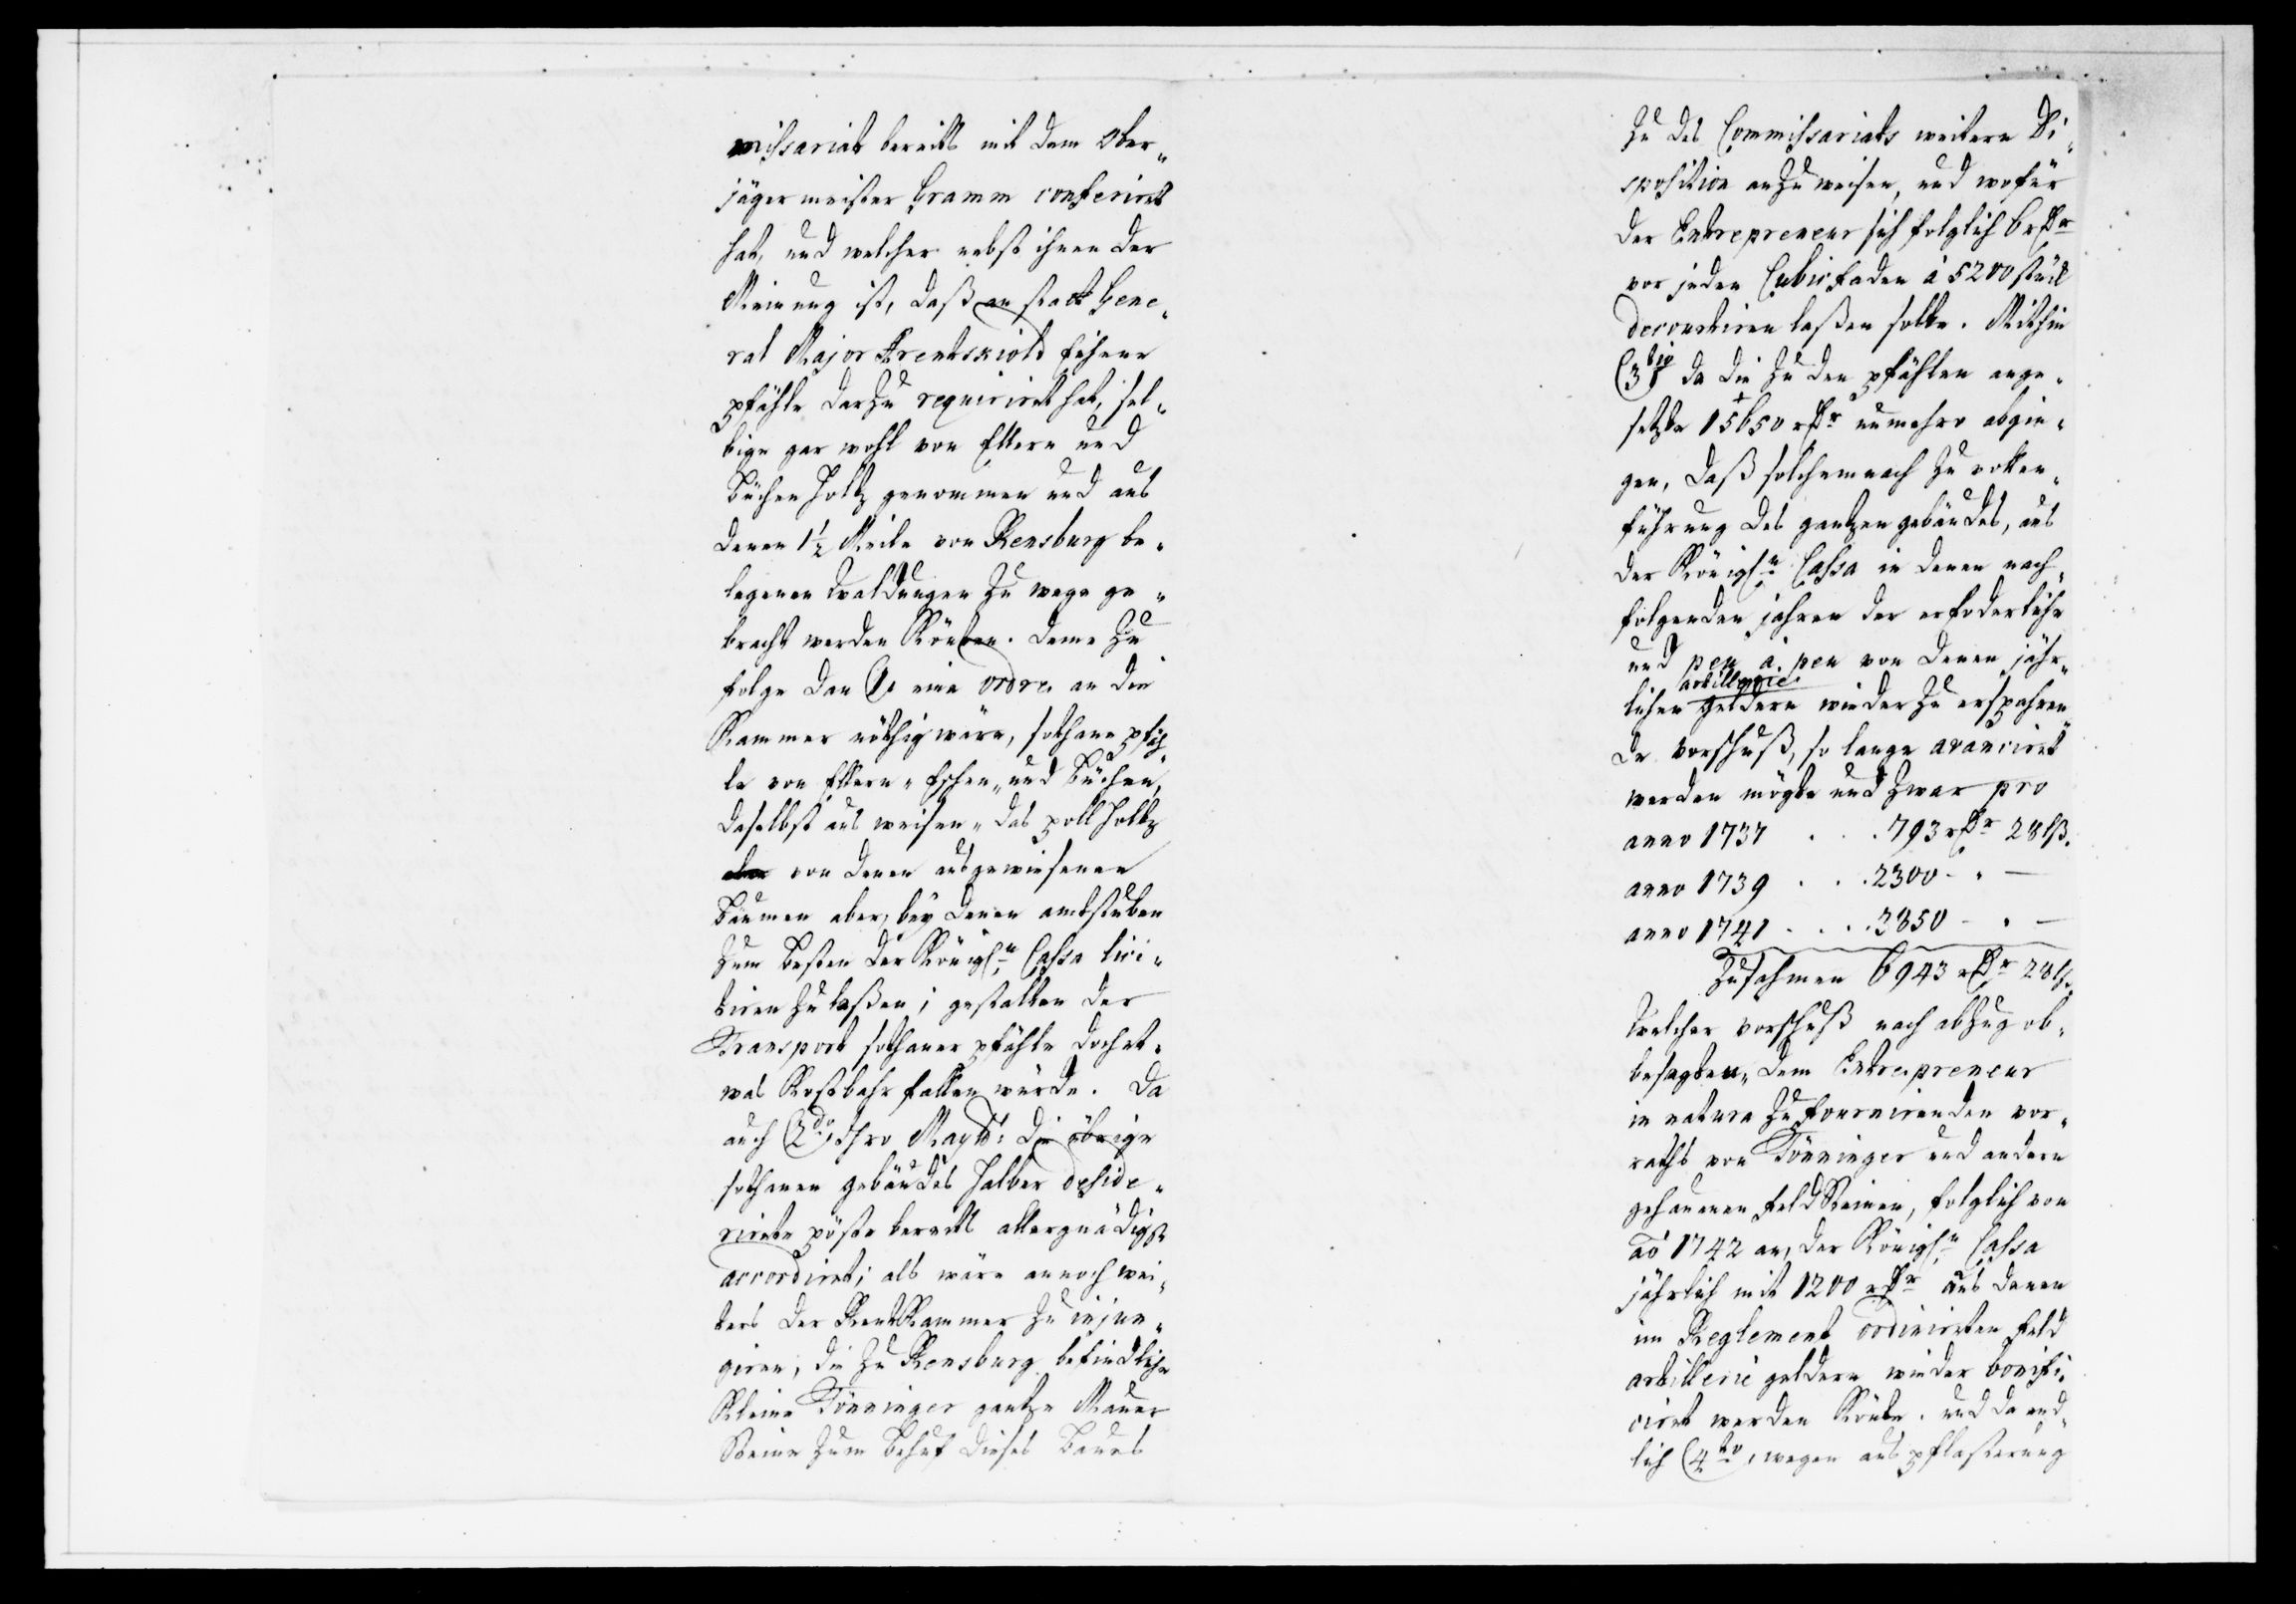 missariat bereits mit dem Ober„
jägermeister Gramm conferiret
hat, und welcher nebst ihnen der
Meinung ist, daß an statt Gene„
ral Major Arentskiold Eichene
pfähle darzu requiriret hat, sel„
bige gar wohl von Ellern und
Büchen Holtz genommen und aus
denen 1½ Meile von Rensburg be„
legenen Waldungen zu wege ge„
bracht werden könten. deme zu
folge dan (1. eine ordre an die
Kammer nöthig wäre, sothane pfäh„
le von Ellern„ Eschen„ und Büchen,
daselbst aus weisen„ das poll Holtz
von denen ausgewiesenen
Bäumen aber, bey denen amtstuben
zum besten der Königln Cassa lici„
tiren zu laßen; gestalten der
Transport sothaner pfähle doch et„
was Kostbahr fallen würde. Da
auch (2do, Ihro Maytt: die übrige
sothanen gebäudes halber deside„
rirete pöste bereits allergnädigst
accordiret; als wäre annoch wei„
ters der RentKammer zu injun„
giren, die zu Rensburg befindliche
Kleine Tönninger gantze Mauer
Steine zum behuf dieses Baues
zu des Commissariats weitere Di„
sposition anzuweisen, und wofür
der Entrepreneur sich folglich 6 rdr
vor jeden Cubicfaden à 5200 stück
decourtiren laßen solte. Mithin
(3tio da die zu den pfählen ange„
setzte 15650 rdr nunmehro abgin„
gen, daß solchemnach zu vollen„
führung des gantzen gebäudes, aus
der Königln Cassa in denen nach„
folgenden jahren der erfoderliche
und peu à peu von denen jähr„
artillerie
lichen geldern wieder zu ersparen„
de vorschuß, so lange avanciret
werden mögte und zwar pro
anno 1737 . . . 793 rdr 28 lß.
anno 1739 . . . 2300 - „ -
anno 1741 . . . 3850 - „ -
Zusahmen 6943 rdr 28 lß.
Welcher vorschuß nach abzug ob„
besagten„ dem Entrepreneur
in natura zu fournirenden vor„
raths von Tönninger und andern
gehauenen feldsteinen, folglich von
ao 1742 an, der Königln Cassa
jährlich mit 1200 rdr aus denen
im Reglement ordinirten feld
artillerie geldern wieder bonifi„
ciret werden könte. und da end„
lich (4to, wegen aus pflasterung